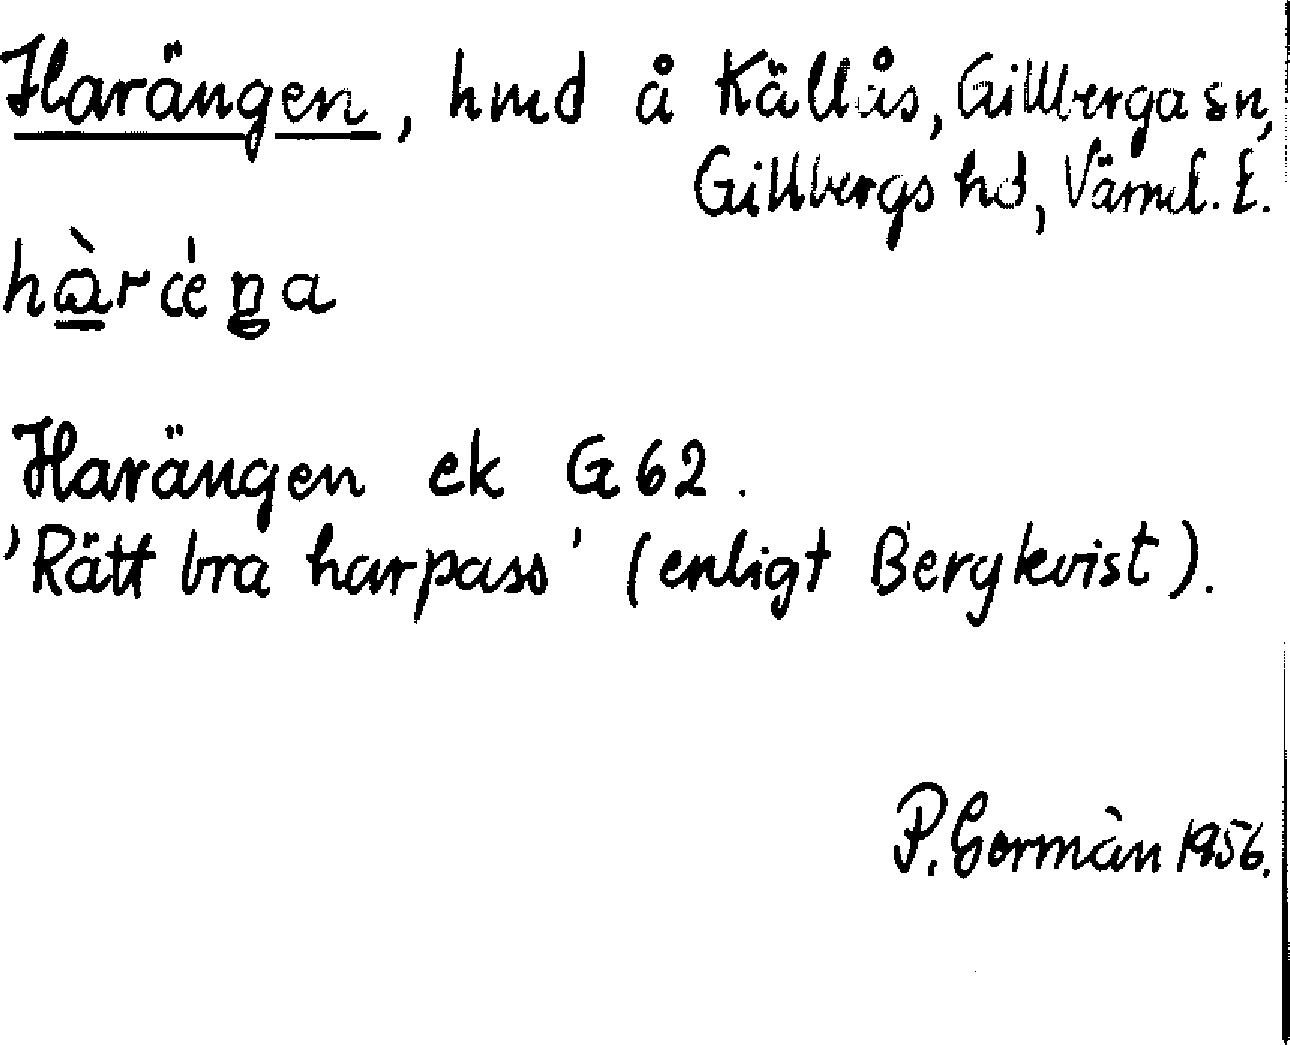 Harängen, hmd å Källås, Gillberga sn,
Gillbergs hd, Värml. l.
hàræ̍ŋa
Harängen ek G 62.
'Rätt bra harpass' (enligt Bergkvist).
P. Gorman 1956.